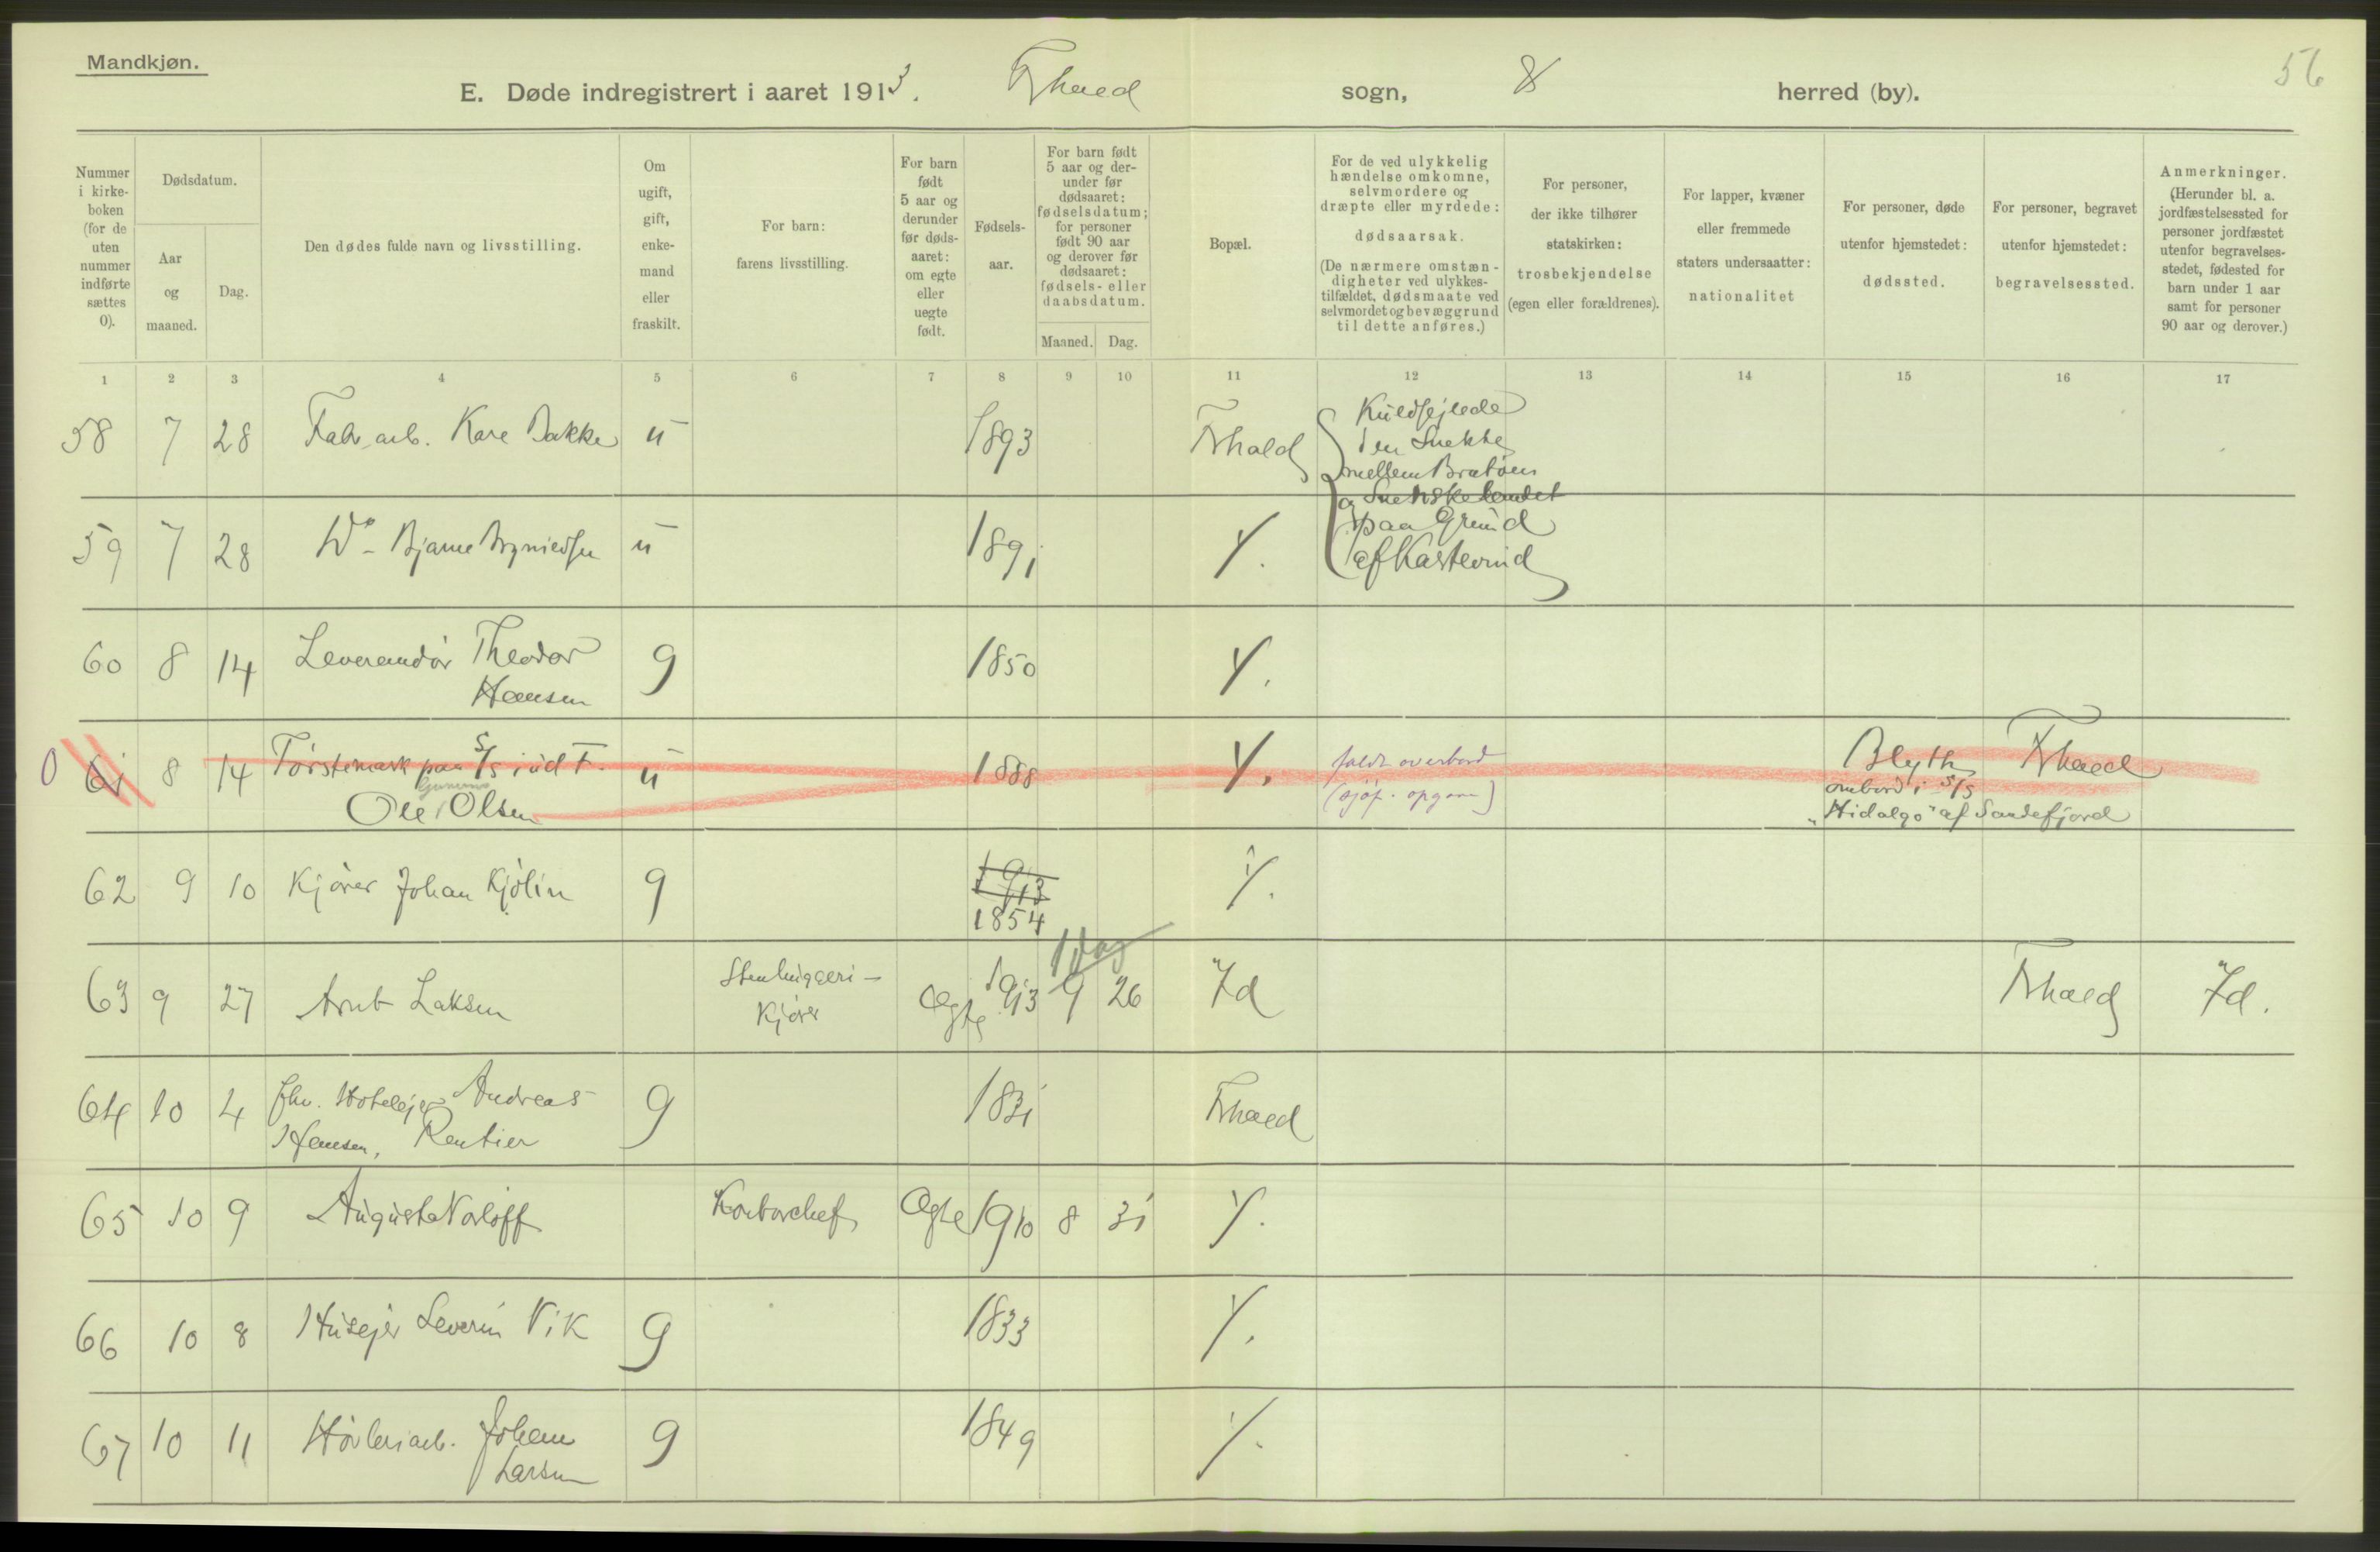 Mandkjøn.
56
E. Døde indregistrert i aaret 1913. Fhald sogn, herred (by).
Nummer i kirke-boken (for de uten nummer indførte sættes 0).
Dødsdatum.
Aar og maaned.
Dag.
Den dødes fulde navn og livsstilling.
Om ugift, gift, enke-mand eller fraskilt.
For barn: farens livsstilling.
For barn født 5 aar og derunder før døds-aaret: om egte eller uegte født.
Fødsels-aar.
For barn født 5 aar og der-under før dødsaaret: fødselsdatum; for personer født 90 aar og derover før dødsaaret: fødsels- eller daabsdatum.
Maaned.
Dag.
Bopæl.
For de ved ulykkelig hændelse omkomne, selvmordere og dræpte eller myrdede: dødsaarsak. (De nærmere omstæn-digheter ved ulykkes-tilfældet, dødsmaate ved selvmordet og bevæggrund til dette anføres.)
For personer, der ikke tilhører statskirken: trosbekjendelse (egen eller forældrenes).
For lapper, kvæner eller fremmede staters undersaatter: nationalitet
For personer, døde utenfor hjemstedet: dødssted.
For personer, begravet utenfor hjemstedet: begravelsessted.
Anmerkninger. (Herunder bl. a. jordfæstelsessted for personer jordfæstet utenfor begravelses-stedet, fødested for barn under 1 aar samt for personer 90 aar og derover.)
1 2 3 4 5 6 7 8 9 10 11 12 13 14 15 16 17
58 7 28 Fabr. arb. Kare Bakke u 1893 Frhald
Kuldsejlede
i en Snekke
mellem Bratöen
og Svenskelandet
paa Grund
af Kastevind
59 7 28 Do - Bjarne u 1891
60 8 14 Leverandör Theodor
Hansen g 1850
0 61 8 14 paa S/S ind F. u 1888 faldt overbord Blyth Frhald
Ole Gunerius Olsen (sjøf. opgave) ombord i S/S
"Hidalgo" af Sandefjord
62 9 10 Kjører Johan Kjölin g 1913
1854
1 dag
63 9 27 Arnt Laksen Stenhuggeri-
Kjører Ægte 1913 9 26 Id Frhald Id.
64 10 4 fhv. Hotelejer Andreas
Hansen, Rentier g 1831 Frhald
65 10 9 August Norløff Kontorchef Ægte 1910 8 31
66 10 8 Husejer Severin Vik g 1833
67 10 11 Høvleriarb. Johan
Larsen g 1849